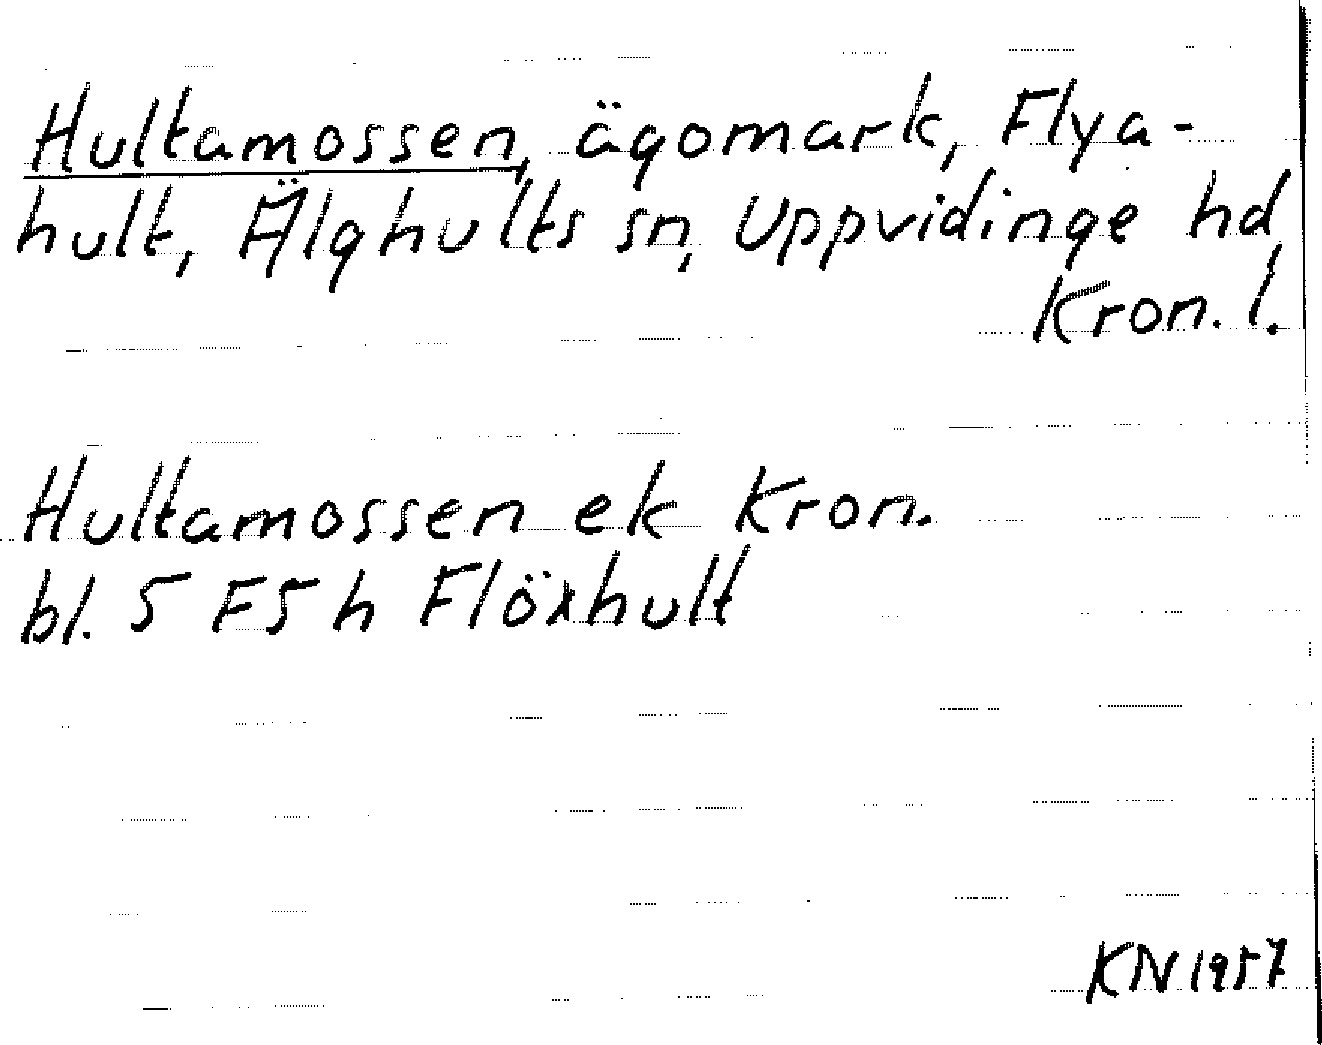 Hultamossen, ägomark, Flya-
hult, Älghults sn, Uppvidinge hd,
Kron. l.
Hultamossen ek Kron.
bl. 5 F5 h Flöxhult
KN 1957